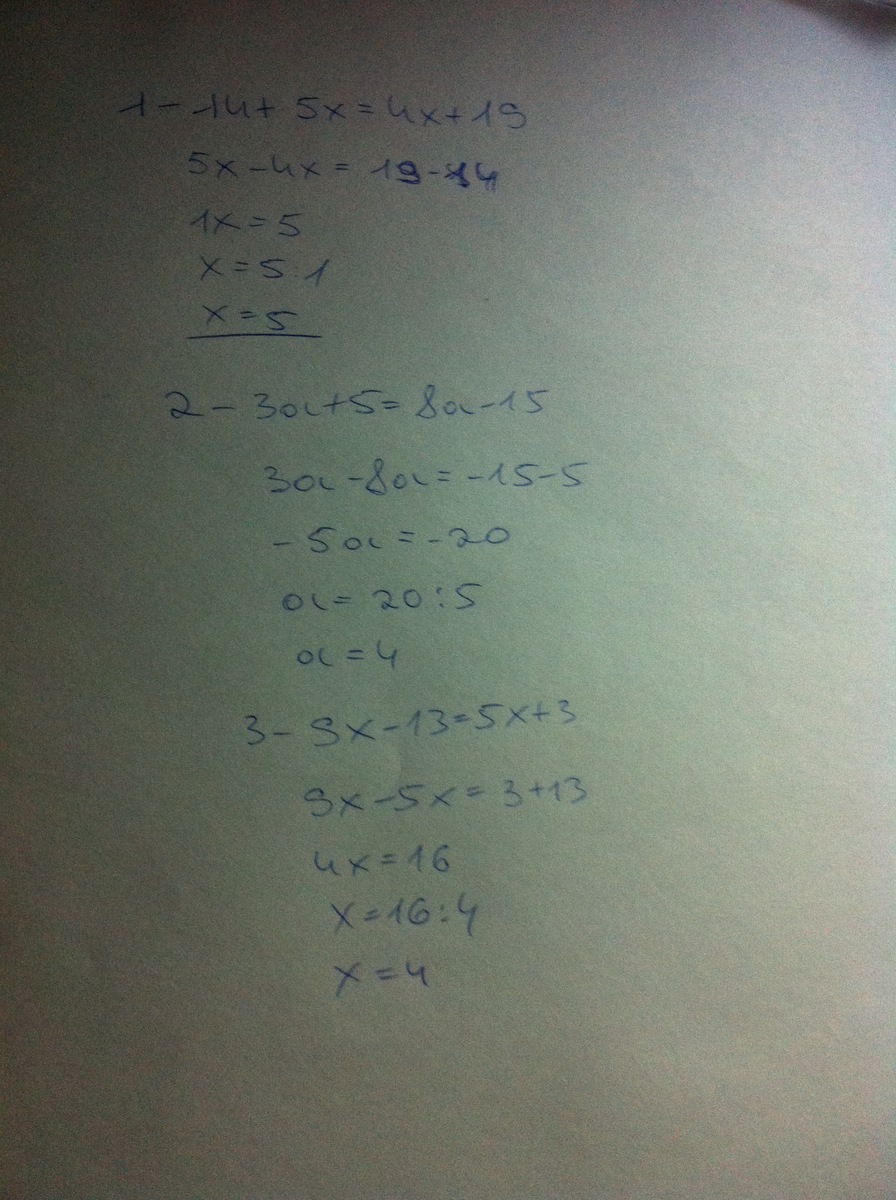 1 - 14 + 5x = 4x + 19
5x - 4x = 19 - 14
1x = 5
x = 5 : 1
x = 5
2 - 3a + 5 = 8a - 15
3a - 8a = -15 - 5
- 5a = -20
a = 20 : 5
a = 4
3 - 9x - 13 = 5x + 3
9x - 5x = 3 + 13
4x = 16
x = 16 : 4
x = 4